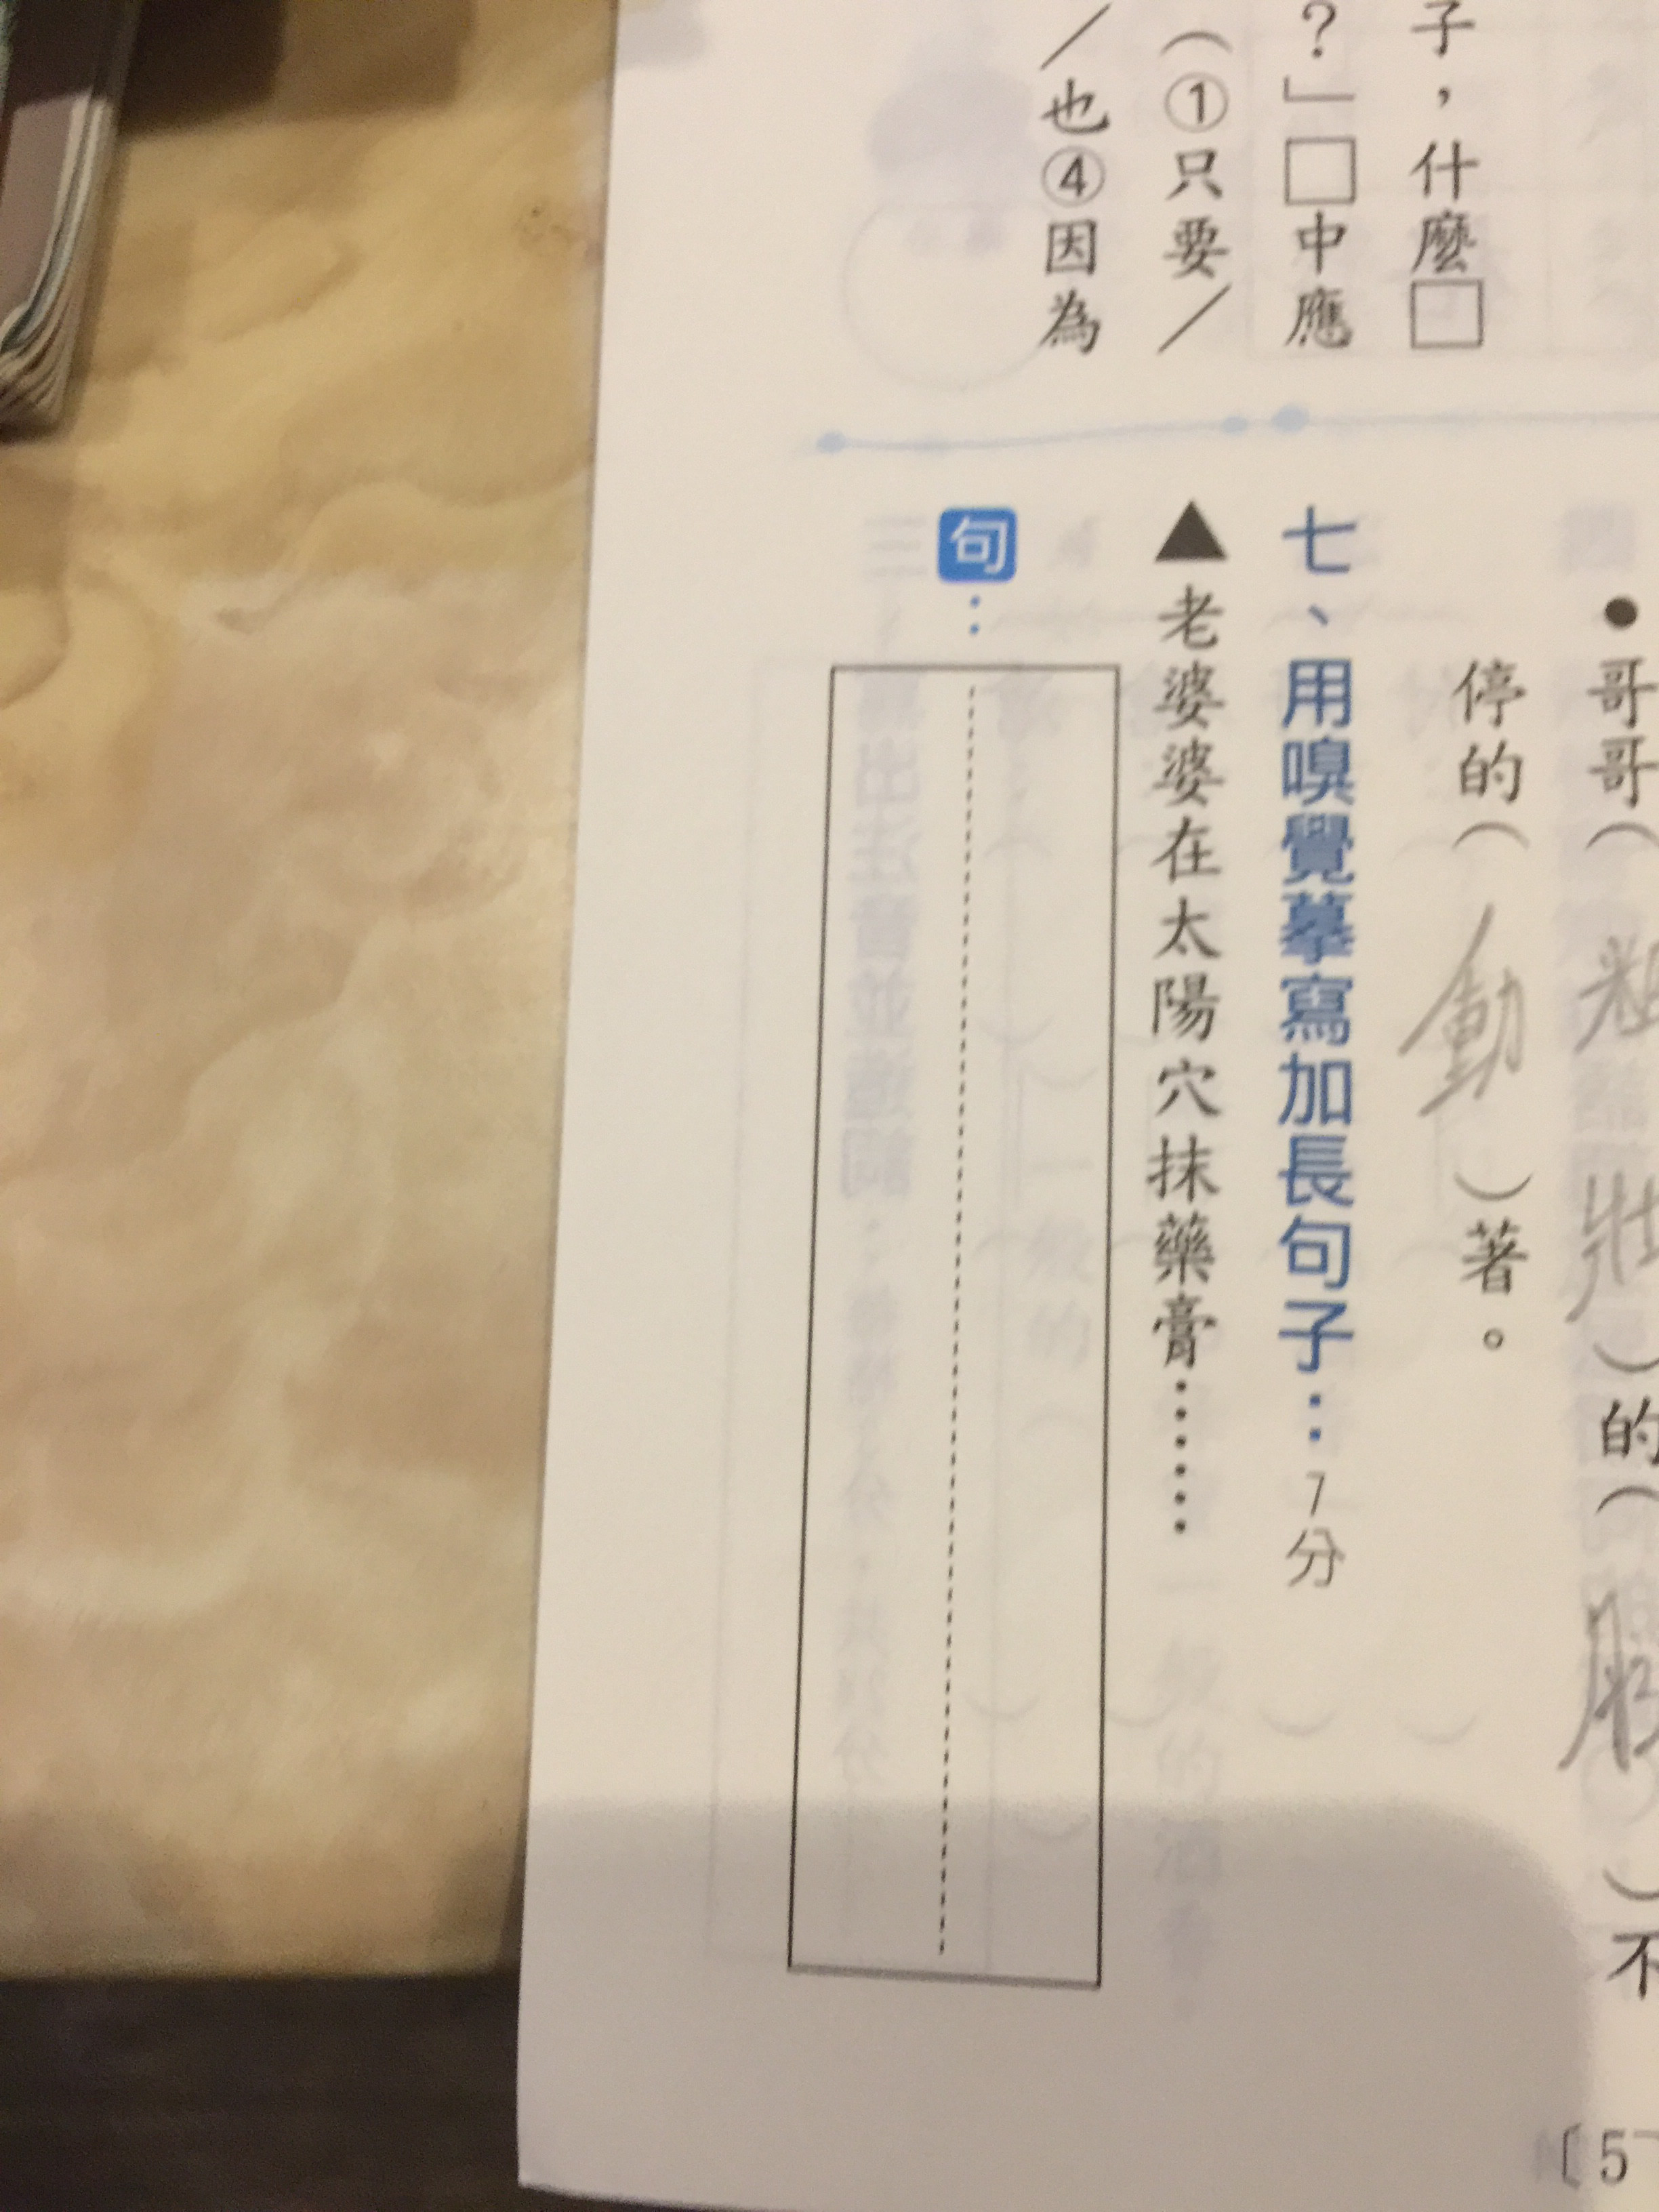 子，什麼□
？」□中應
（①只要／
／也④因為
●哥哥（粗壯）的（
）不
停的（動）著。
七、用嗅覺摹寫加長句子：7分
▲老婆婆在太陽穴抹藥膏⋯⋯
句：
〔5